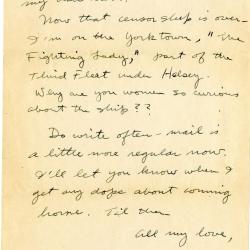 Now that censorship is over
I'm on the Yorktown, "The
Fighting Lady," part of the
Third Fleet under Halsey.
Why are you women so curious
about the ship??
Do write often - mail is
a little more regular now.
I'll let you know when I
get any dope about coming
home. Til then
All my love,